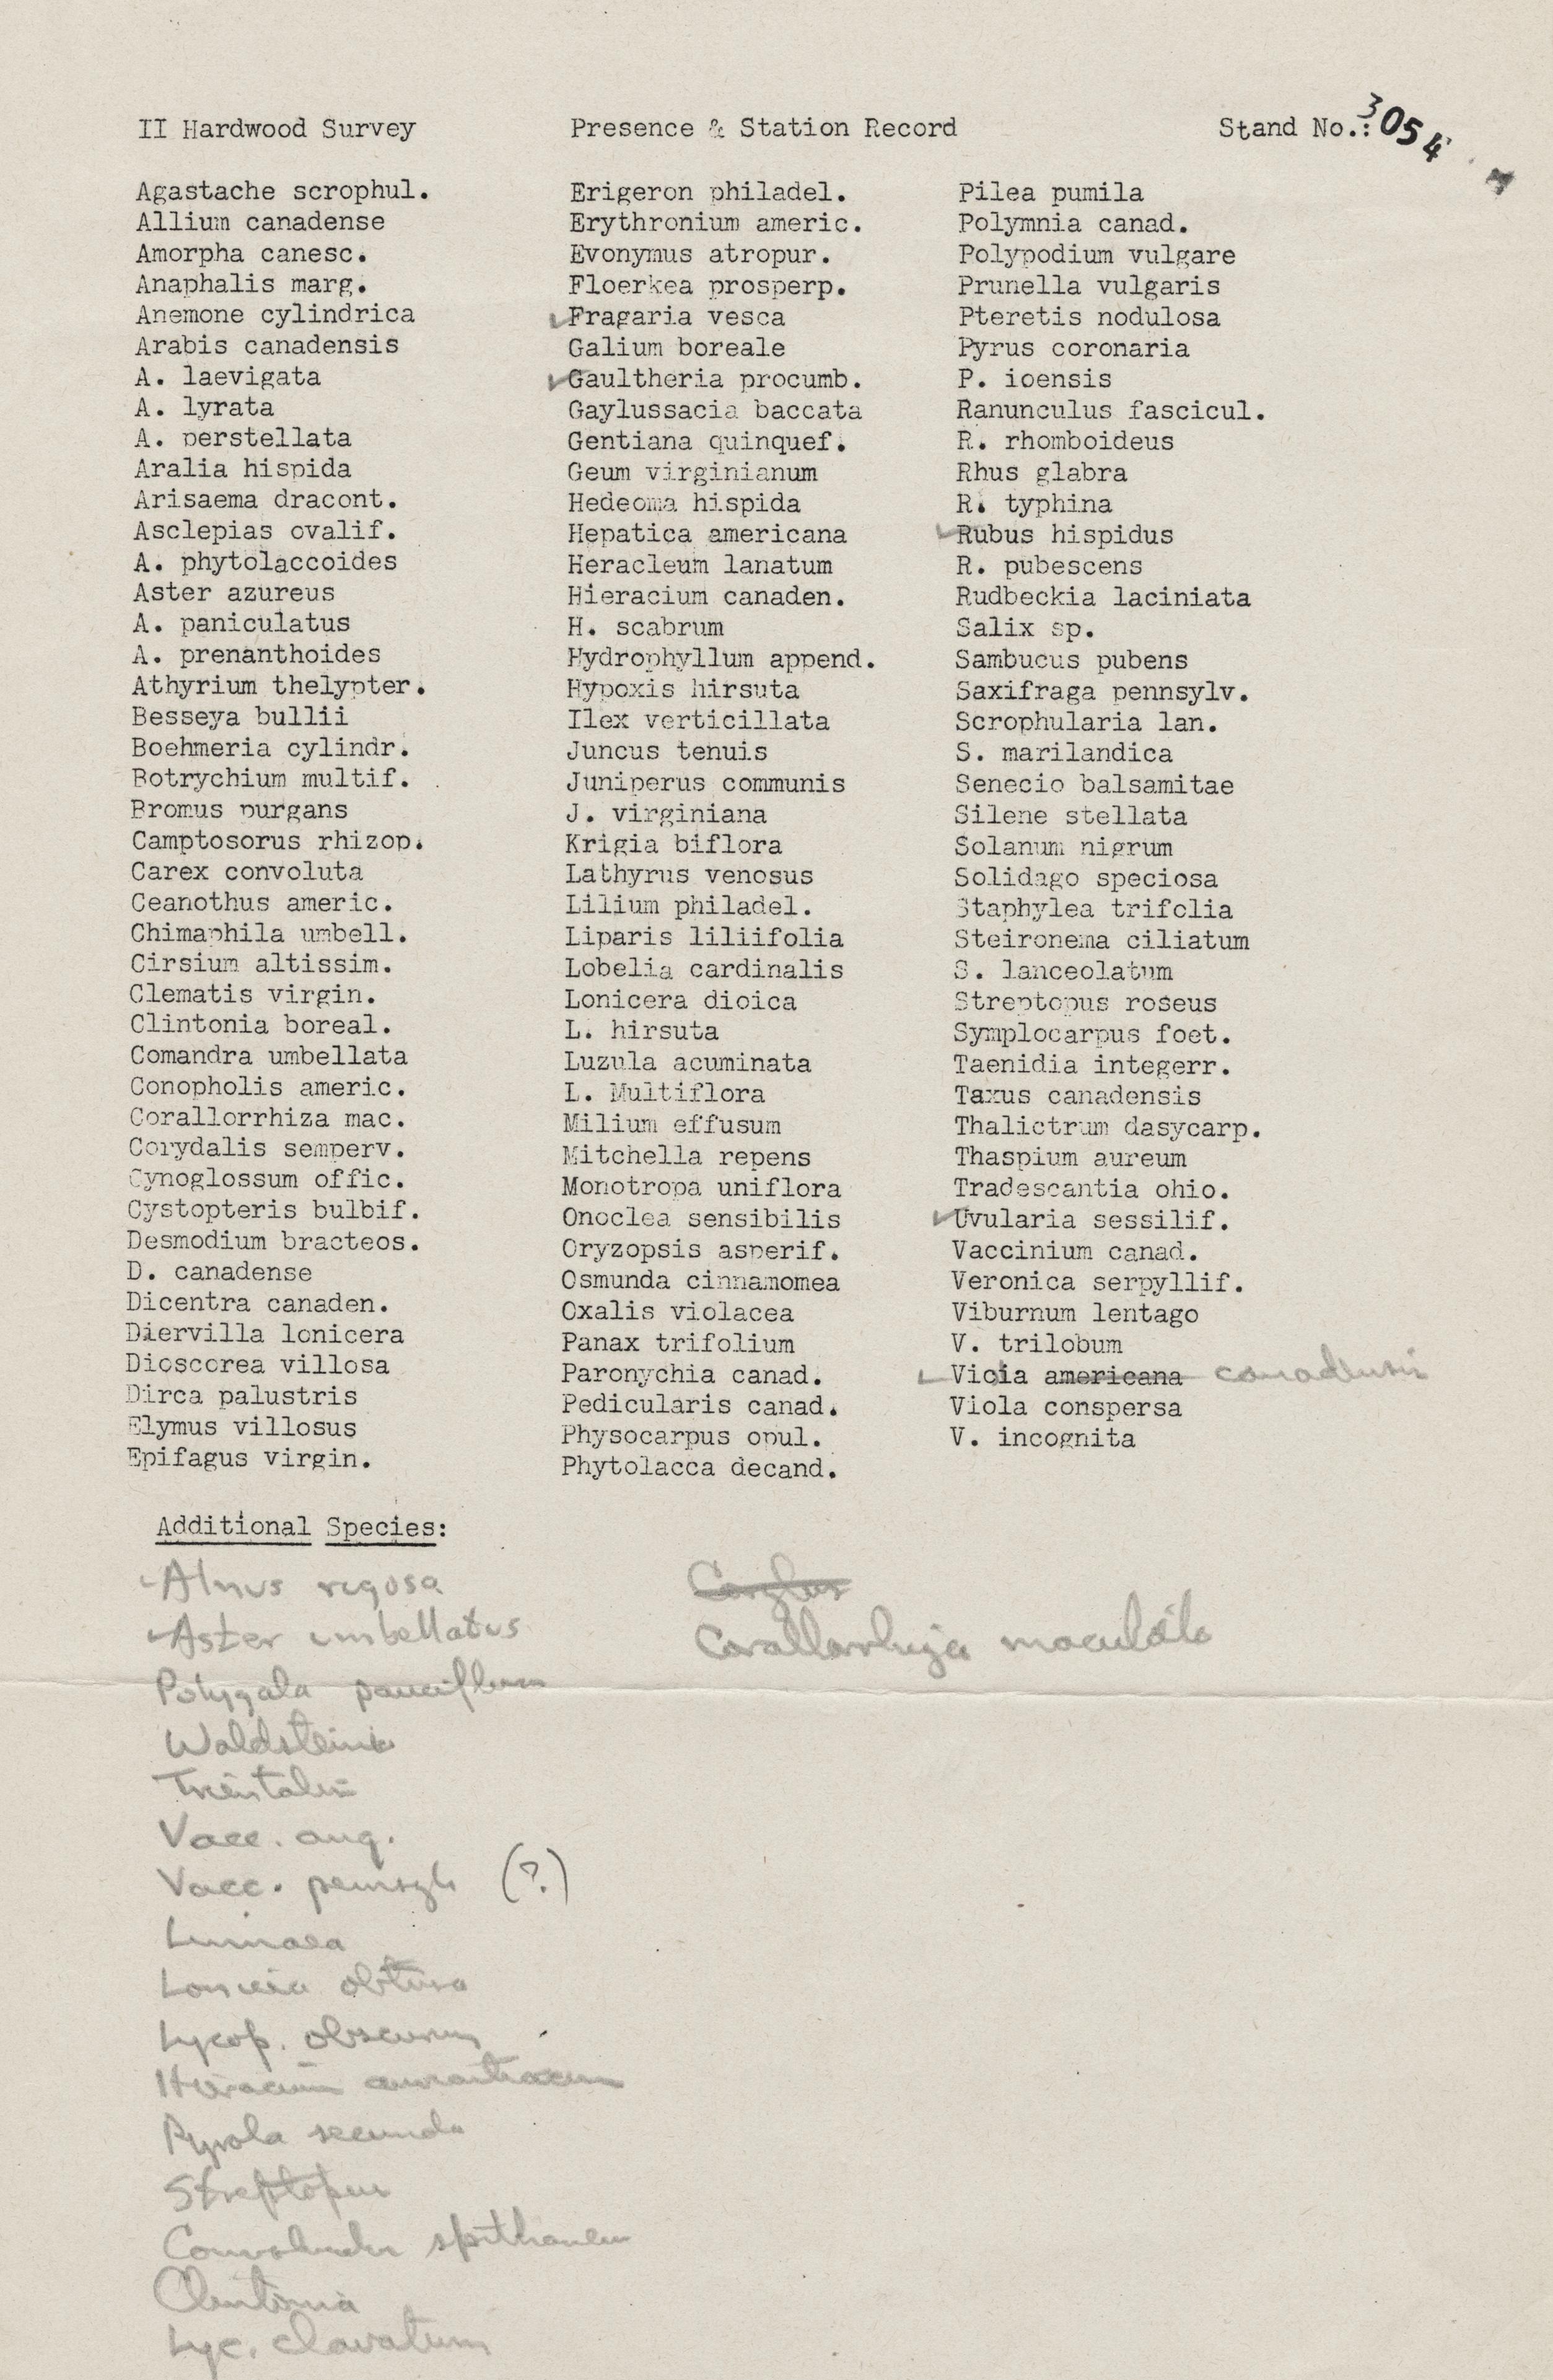 II Hardwood Survey
Presence & Station Record
Stand No.: 3054
Agastache scrophul.
Allium canadense
Amorpha canesc.
Anaphalis marg.
Anemone cylindrica
Arabis canadensis
A. laevigata
A. lyrata
A. perstellata
Aralia hispida
Arisaema dracont.
Asclepias ovalif.
A. phytolaccoides
Aster azureus
A. paniculatus
A. prenanthoides
Athyrium thelypter.
Besseya bullii
Boehmeria cylindr.
Botrychium multif.
Bromus purgans
Camptosorus rhizop.
Carex convoluta
Ceanothus americ.
Chimaphila umbell.
Cirsium altissim.
Clematis virgin.
Clintonia boreal.
Comandra umbellata
Conopholis americ.
Corallorrhiza mac.
Corydalis semperv.
Cynoglossum offic.
Cystopteris bulbif.
Desmodium bracteos.
D. canadense
Dicentra canaden.
Diervilla lonicera
Dioscorea villosa
Dirca palustris
Elymus villosus
Epifagus virgin.
Erigeron philadel.
Erythronium americ.
Evonymus atropur.
Floerkea prosperp.
✓Fragaria vesca
Galium boreale
✓Gaultheria procumb.
Gaylussacia baccata
Gentiana quinquef.
Geum virginianum
Hedeoma hispida
Hepatica americana
Heracleum lanatum
Hieracium canaden.
H. scabrum
Hydrophyllum append.
Hypoxis hirsuta
Ilex verticillata
Juncus tenuis
Juniperus communis
J. virginiana
Krigia biflora
Lathyrus venosus
Lilium philadel.
Liparis liliifolia
Lobelia cardinalis
Lonicera dioica
L. hirsuta
Luzula acuminata
L. Multiflora
Milium effusum
Mitchella repens
Monotropa uniflora
Onoclea sensibilis
Oryzopsis asperif.
Osmunda cinnamomea
Oxalis violacea
Panax trifolium
Paronychia canad.
Pedicularis canad.
Physocarpus opul.
Phytolacca decand.
Pilea pumila
Polymnia canad.
Polypodium vulgare
Prunella vulgaris
Pteretis nodulosa
Pyrus coronaria
P. ioensis
Ranunculus fascicul.
R. rhomboideus
Rhus glabra
R. typhina
✓Rubus hispidus
R. pubescens
Rudbeckia laciniata
Salix sp.
Sambucus pubens
Saxifraga pennsylv.
Scrophularia lan.
S. marilandica
Senecio balsamitae
Silene stellata
Solanum nigrum
Solidago speciosa
Staphylea trifolia
Steironema ciliatum
S. lanceolatum
Streptopus roseus
Symplocarpus foet.
Taenidia integerr.
Taxus canadensis
Thalictrum dasycarp.
Thaspium aureum
Tradescantia ohio.
✓Uvularia sessilif.
Vaccinium canad.
Veronica serpyllif.
Viburnum lentago
V. trilobum
✓Viola americana canadensis
Viola conspersa
V. incognita
Additional Species:
✓Alnus rugosa
✓Aster umbellatus
Polygala pauciflora
Waldsteinia
Trientalis
Vacc. ang.
Vacc. pensyl (?)
Linnaea
obtusa
Lycop. obscurum
Hieracium aurantiacum
Pyrola secunda
Streptopus
Convolvulus spithameus
Clintonia
Lyc. clavatum
Corylus
Corallorrhiza maculata